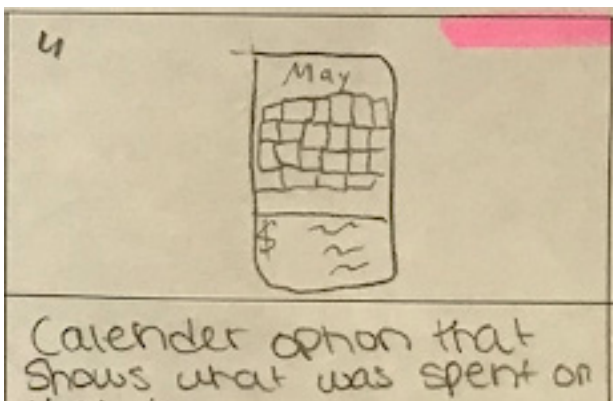 4
May
$
Calender option that
shows what was spent on